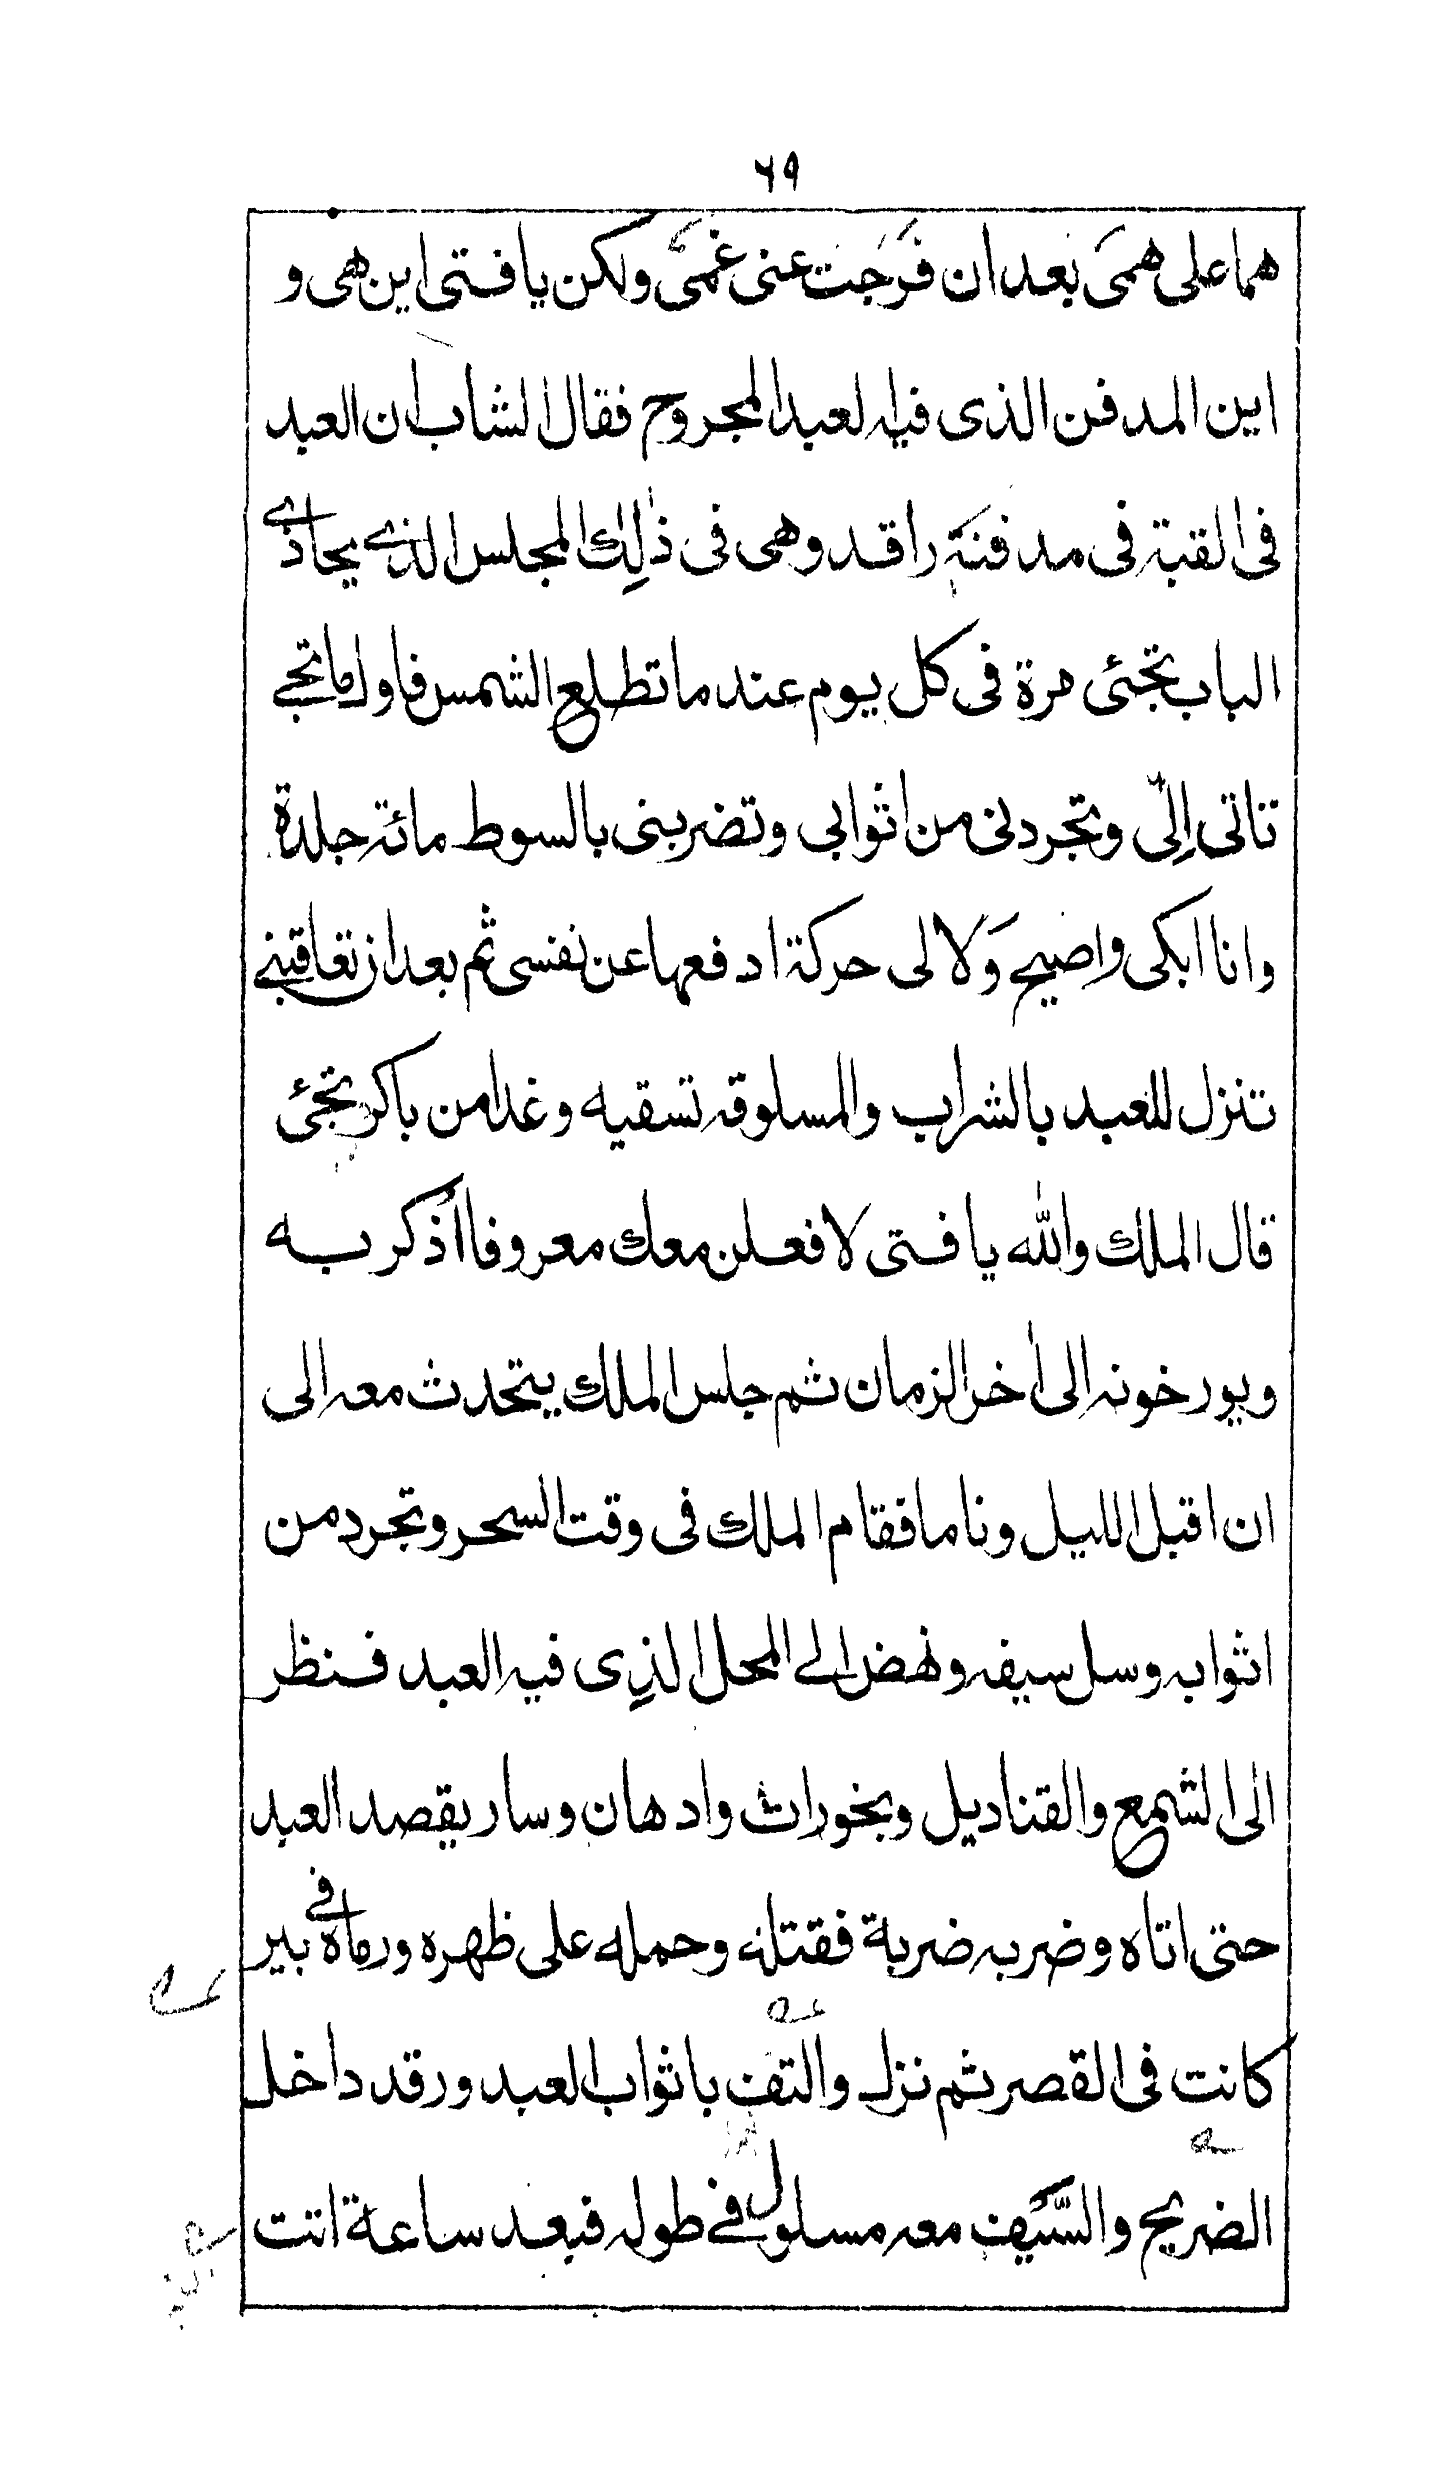 ٦٩
هما على همى بعد ان فَرَجت عنى غمَّى ولكن يا فتى اين هى و
اين المدفن الذى فيه العبد المجروح فقال الشاب ان العبد
فى القبة فى مدفنَة راقد وهى فى ذٰلِك المجلس الذى يحاذى
الباب تجئى مرة فى كل يوم عند ما تطلع الشمس فاول ما تجى
تاتى اِلىّ وتجردنى من اثوابى وتضربنى بالسوط مائة جلدة
وانا ابكى واصيح وَلا لى حركة ادفعها عن نفسى ثم بعد ان تعاقبنى
تنزل للعبد بالشراب والمسلوقة تسقيه وغدا من باكر تجئ
قال الملك والله يا فتى لافعلن معك معروفا اُذكر به
ويورخونه الى اٰخر الزمان ثم جلس الملك يتحدث معه الى
ان اقبل الليل وناما فقام الملك فى وقت السحر وتجرد من
اثوابه وسل سيفه ونهض الى المحل الذِى فيه العبد فنظر
الى الشمع والقناديل وبخورات وادهان وسار يقصد العبد
حتى اتاه وضربه ضربة فقتله وحمله على ظهره ورماه فى بير
كانت فى القصر ثم نزل والتف باثواب العبد ورقد داخل
الضريح والسَّيف معه مسلول فى طوله فبعد ساعة اتت